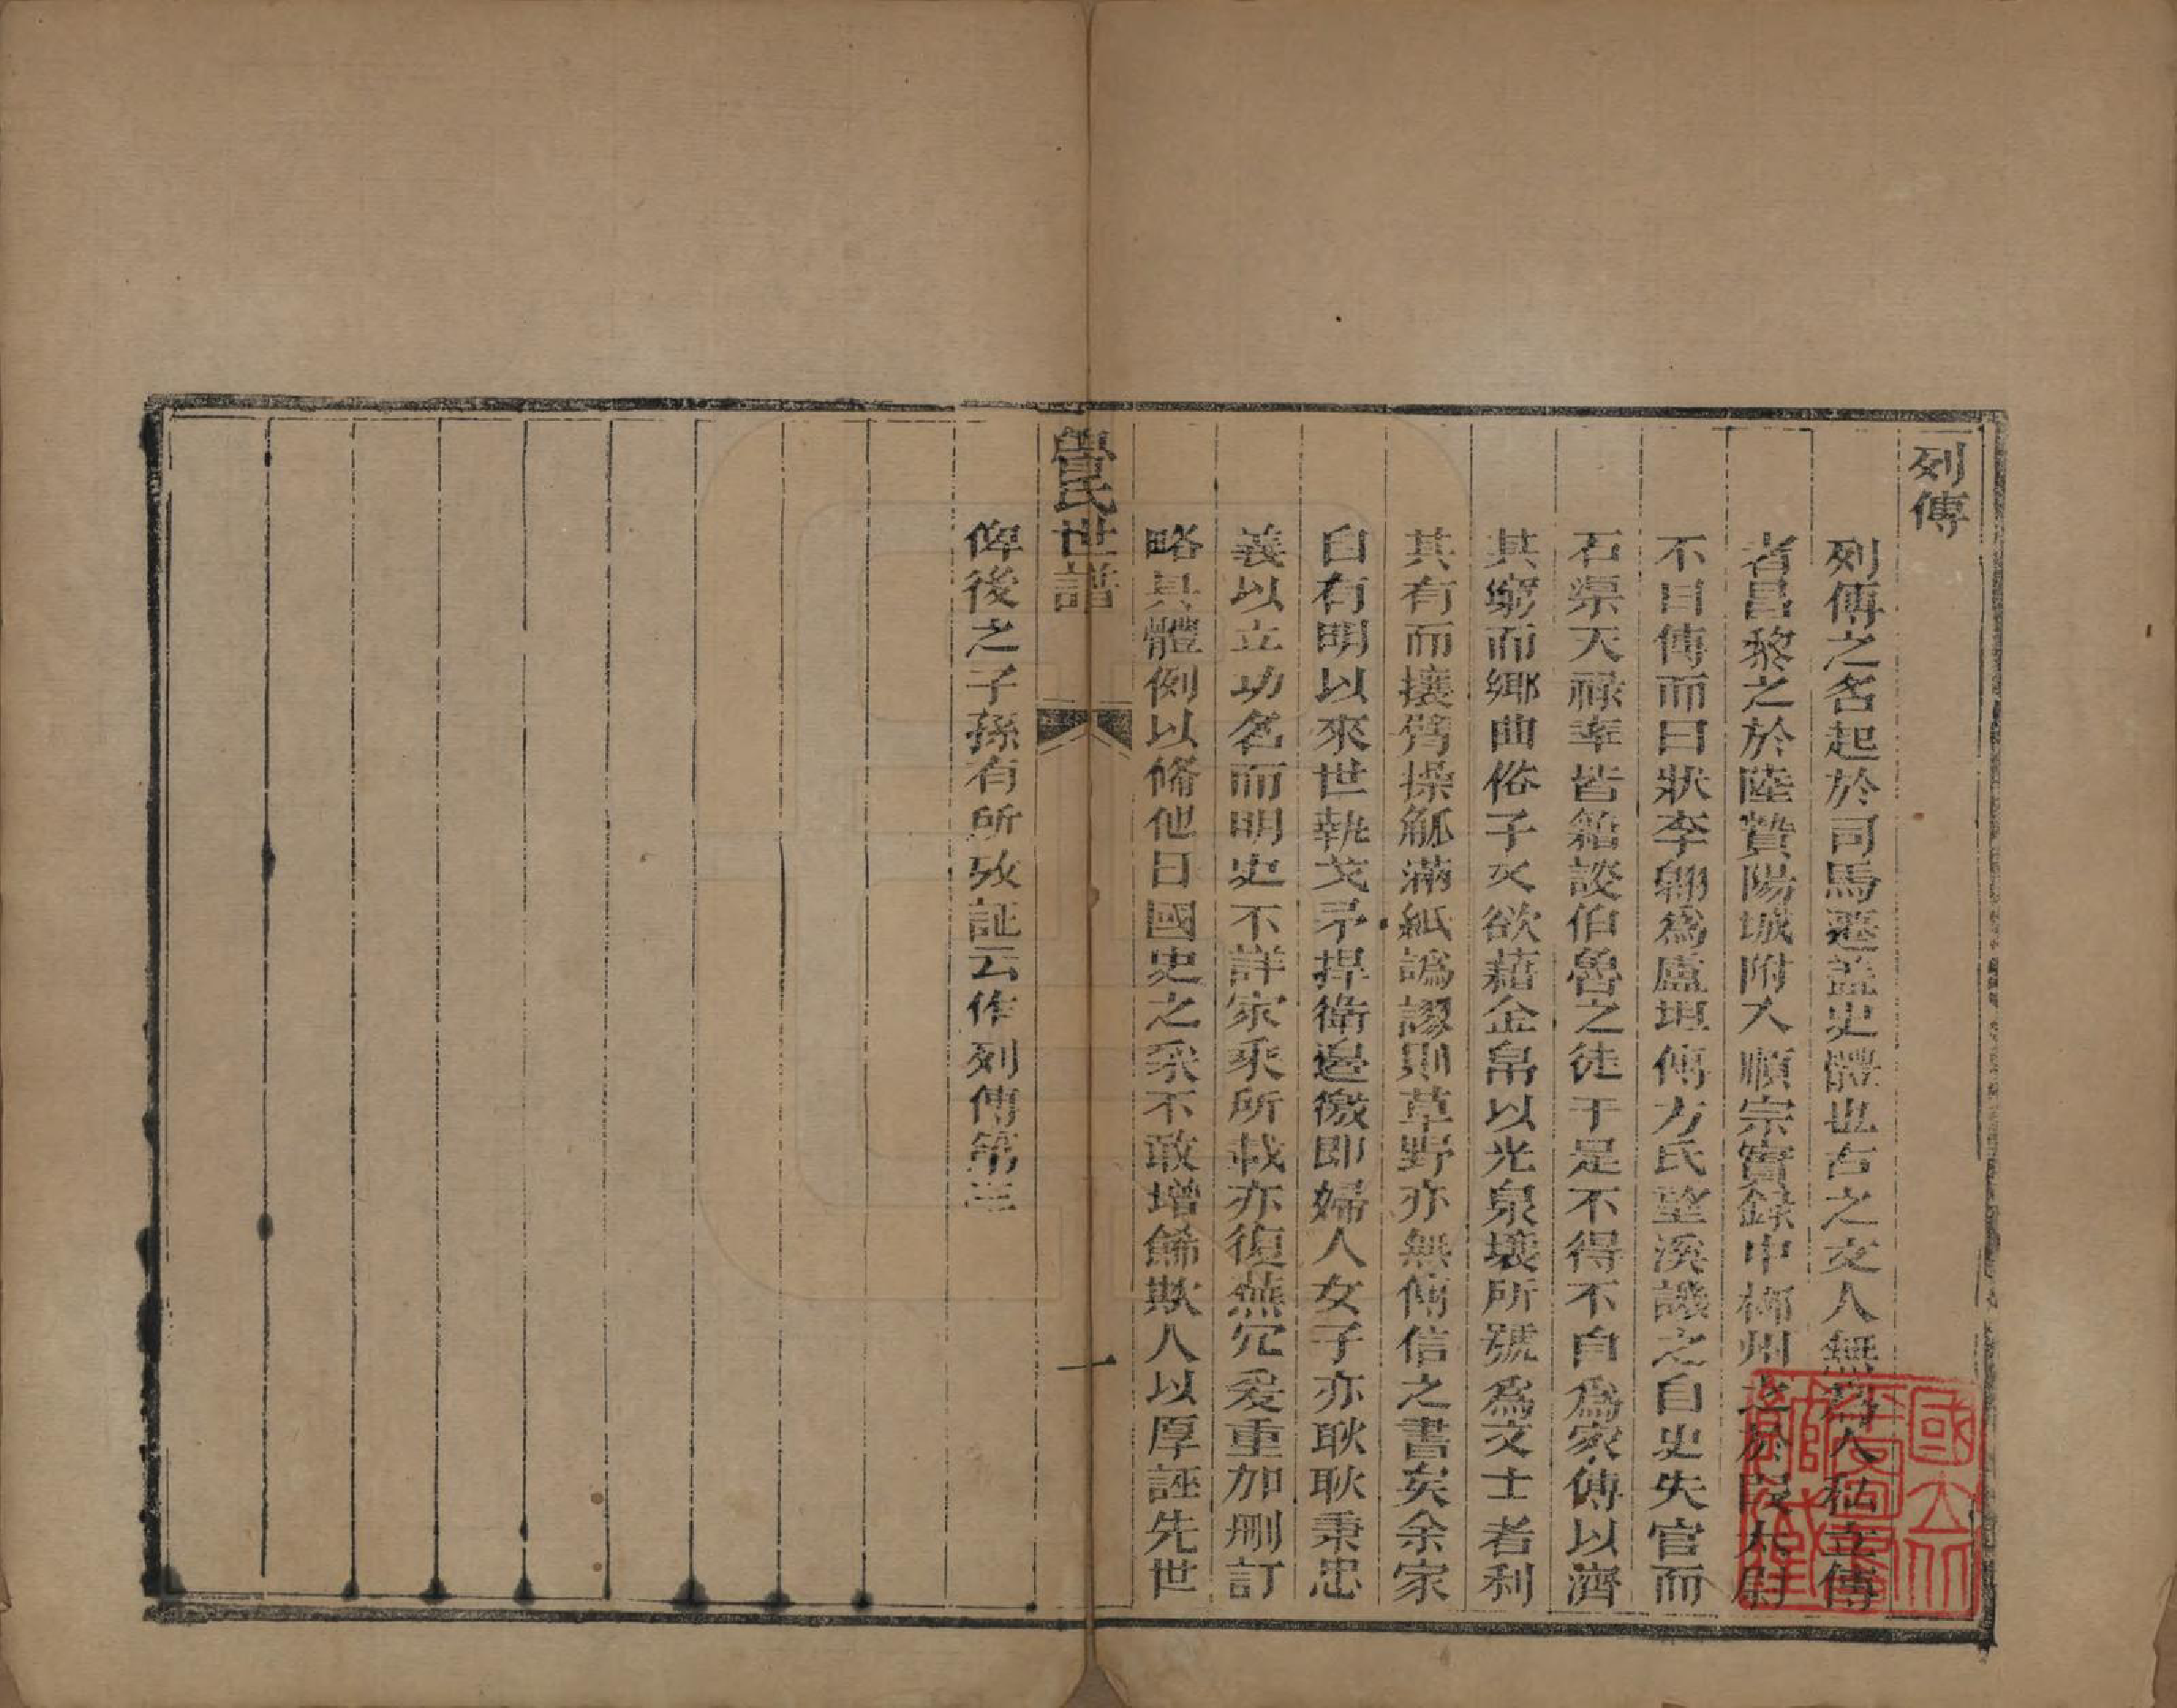 列傳
列傳之名起於司馬遷蓋史體也古之文人無爲人私立傳
者昌黎之於陸贄陽城附入順宗實録中柳州之於段太尉
不曰傳而曰狀李翱爲盧坦傳方氏望溪譏之自史失官而
石渠天祿率皆籍談伯魯之徒于是不得不自爲家傳以濟
其窮而鄉曲俗子又欲藉金帛以光泉壤所號爲文士者利
其有而攘臂操觚滿紙譌謬則草野亦無傳信之書矣余家
自有明以來世執戈矛捍衛邊徼即婦人女子亦耿耿秉忠
義以立功名而明史不詳家乘所載亦復蕪冗爰重加刪訂
略具體例以備他日國史之采不敢增餙欺人以厚誣先世
俾後之子孫有所攷証云作列傳第三
氏世譜
一
國立